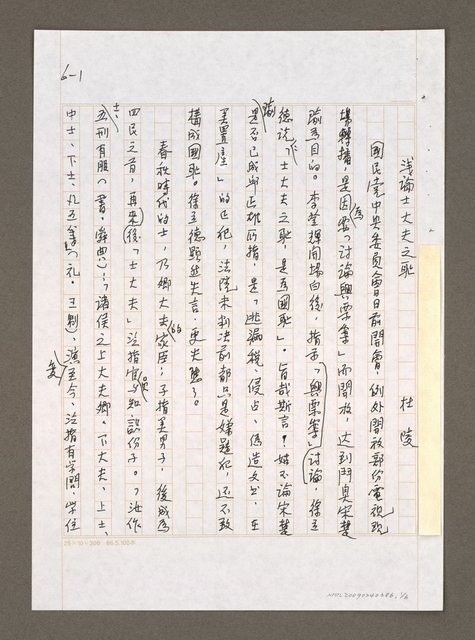 6-1
淺論士大夫之恥
杜陵
國民黨中央委員會日前開會,例外開放部份電視現
場轉播,是因為要「討論興票案」而開放,達到鬥臭宋楚
瑜為目的。李登輝開場白後,指示「興票案」討論,徐立
德說:「士大夫之恥,是為國恥」。旨哉斯言!姑不論宋楚瑜
是否已成邱正雄所指,是「逃漏稅、侵占、偽造文書、在
美置產」的正犯,法院未判決前都只是嫌疑犯,還不致
構成國恥。徐立德顯然失言,更失態了。
春秋時代的士,乃鄉大夫的家臣;子指美男子,後成為
四民之首,再來後「士大夫」泛指官員與知識份子。「汝作士,
五刑有服」(書.舜典);「諸侯之上大夫卿。下大夫、上士、
中士、下士、凡五等」(禮.王制),演變至今,泛指有學問、學位
25×10=300 86.5.100本
NML20090240286,1/6